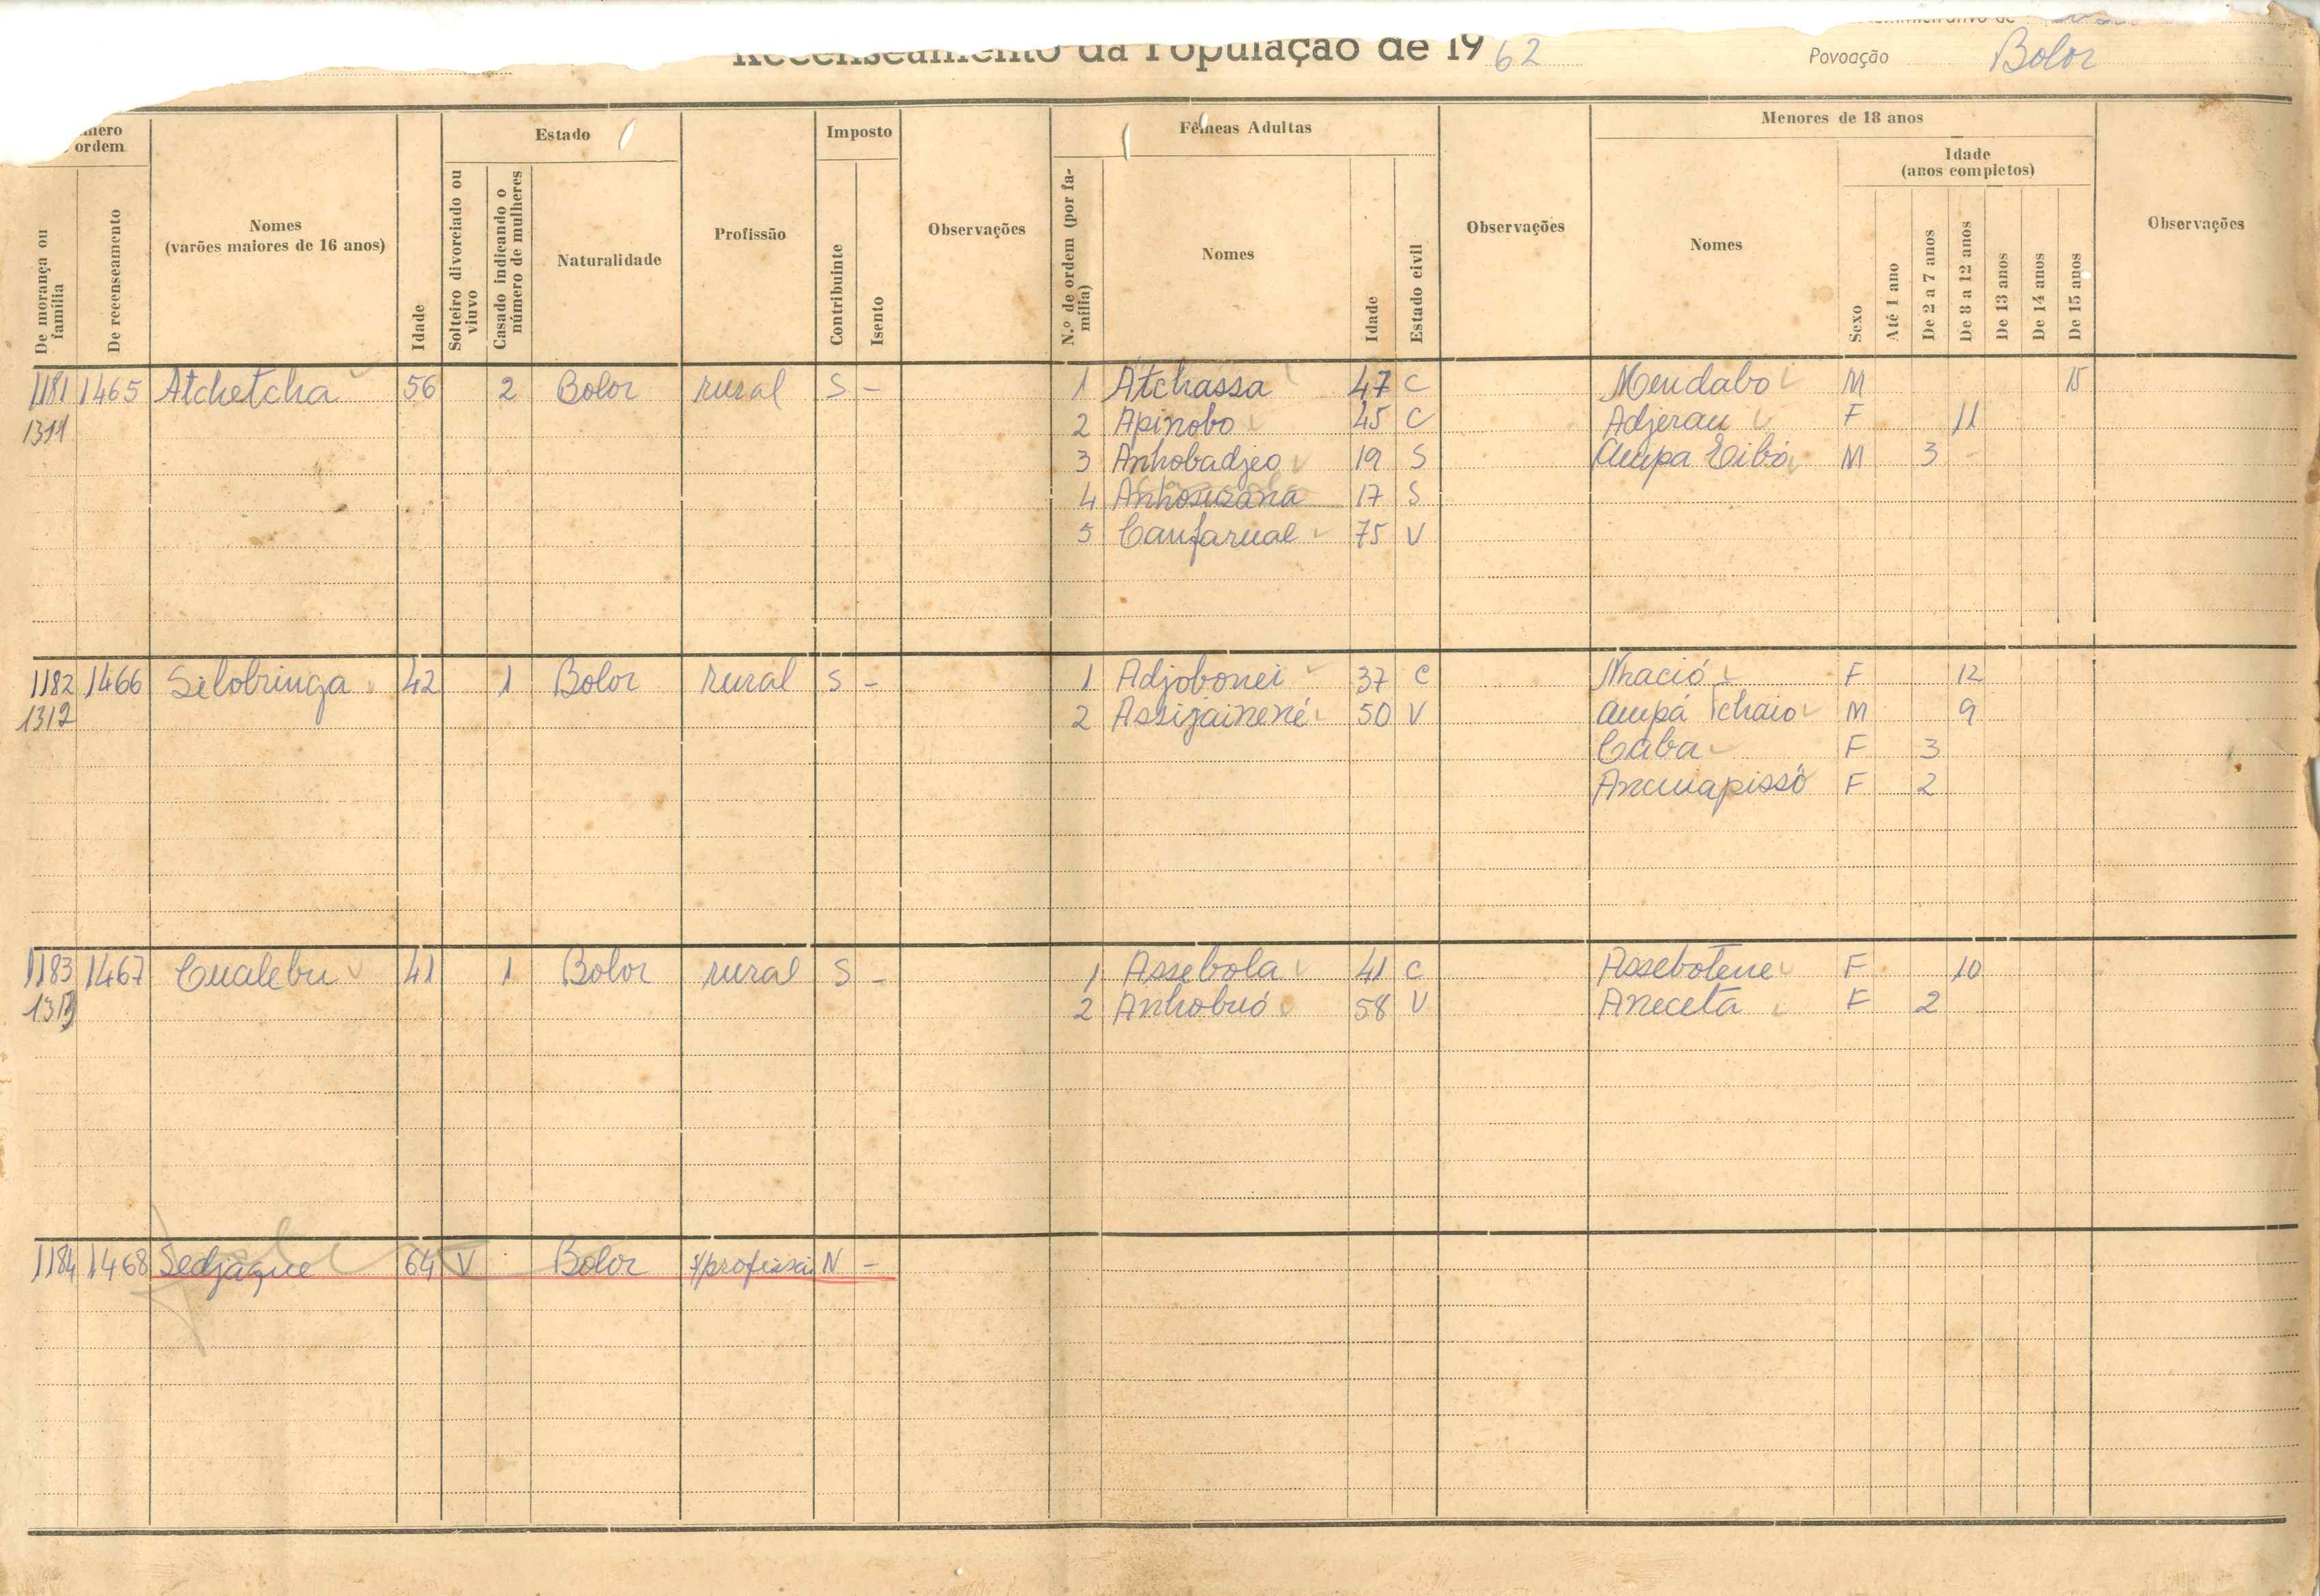 Recenseamento da População de 1962 Povoação Bolor
ordem
Nomes
(varões maiores de 16 anos)
Estado
Imposto
Fêmeas Adultas
Menores de 18 anos
Idade
(anos completos)
De morança ou família
De recenseamento
Idade
Solteiro divorciado ou viuvo
Casado indicando o número de mulheres
Naturalidade
Profissão
Contribuinte
Isento
Observações
N.º de ordem (por família)
Nomes
Idade
Estado civil
Observações
Nomes
Sexo
Até 1 ano
De 2 a 7 anos
De 8 a 12 anos
De 13 anos
De 14 anos
De 15 anos
Observações
1181 1465 Atchetcha 56 2 Bolor rural S - 1 Atchassa 47 C Mendabo M 15
1311 2 Apinobo 45 C Adjerau F 11
3 Anhobadjeo 19 S Ampa Eibó M 3
4 Anhosusana 17 S
5 Canfarual 75 V
1182 1466 Silobringa 42 1 Bolor rural S - 1 Adjobonei 37 C Nhació F 12
1312 2 Assijainené 50 V Ampá Tchaio M 9
Caba F 3
F 2
1183 1467 Cualebu 41 1 Bolor rural S - 1 Assebola 41 C Assebotene F 10
1313 2 Anhobuó 58 V Aneceta F 2
1184 1468 Sedjaque 64 V Bolor s/profissão N -